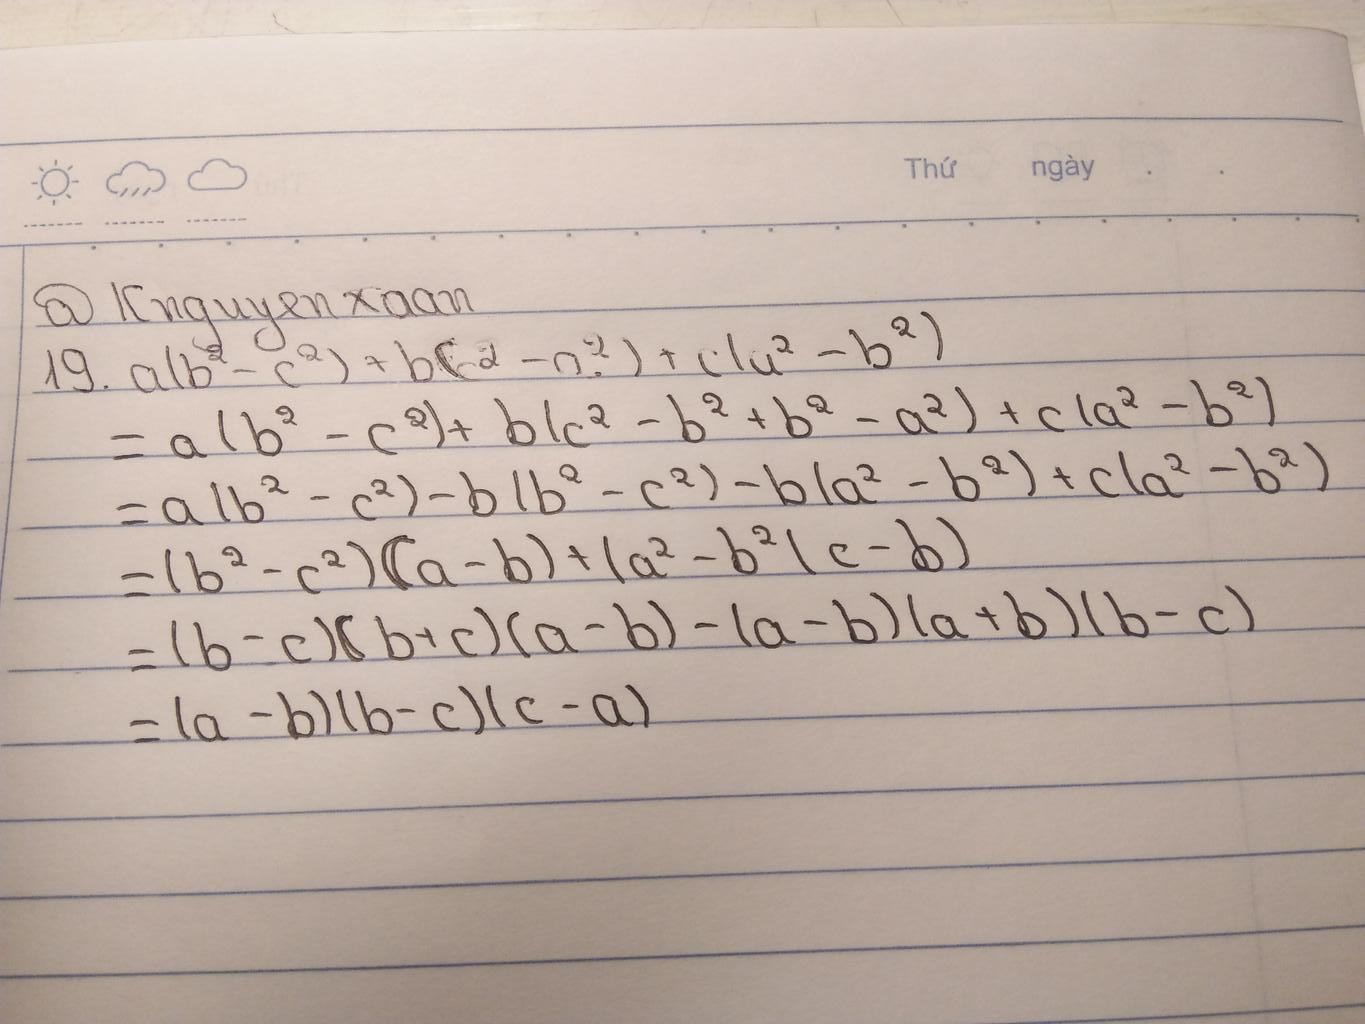 Thứ ngày . .
@ Knguyenxaan
19. a(b² - c²) + b(c² - a²) + c(a² - b²)
= a(b² - c²) + b(c² - b² + b² - a²) + c(a² - b²)
= a(b² - c²) - b(b² - c²) - b(a² - b²) + c(a² - b²)
= (b² - c²)(a - b) + (a² - b²(c - b)
= (b - c)(b + c)(a - b) - (a - b)(a + b)(b - c)
= (a - b)(b - c)(c - a)